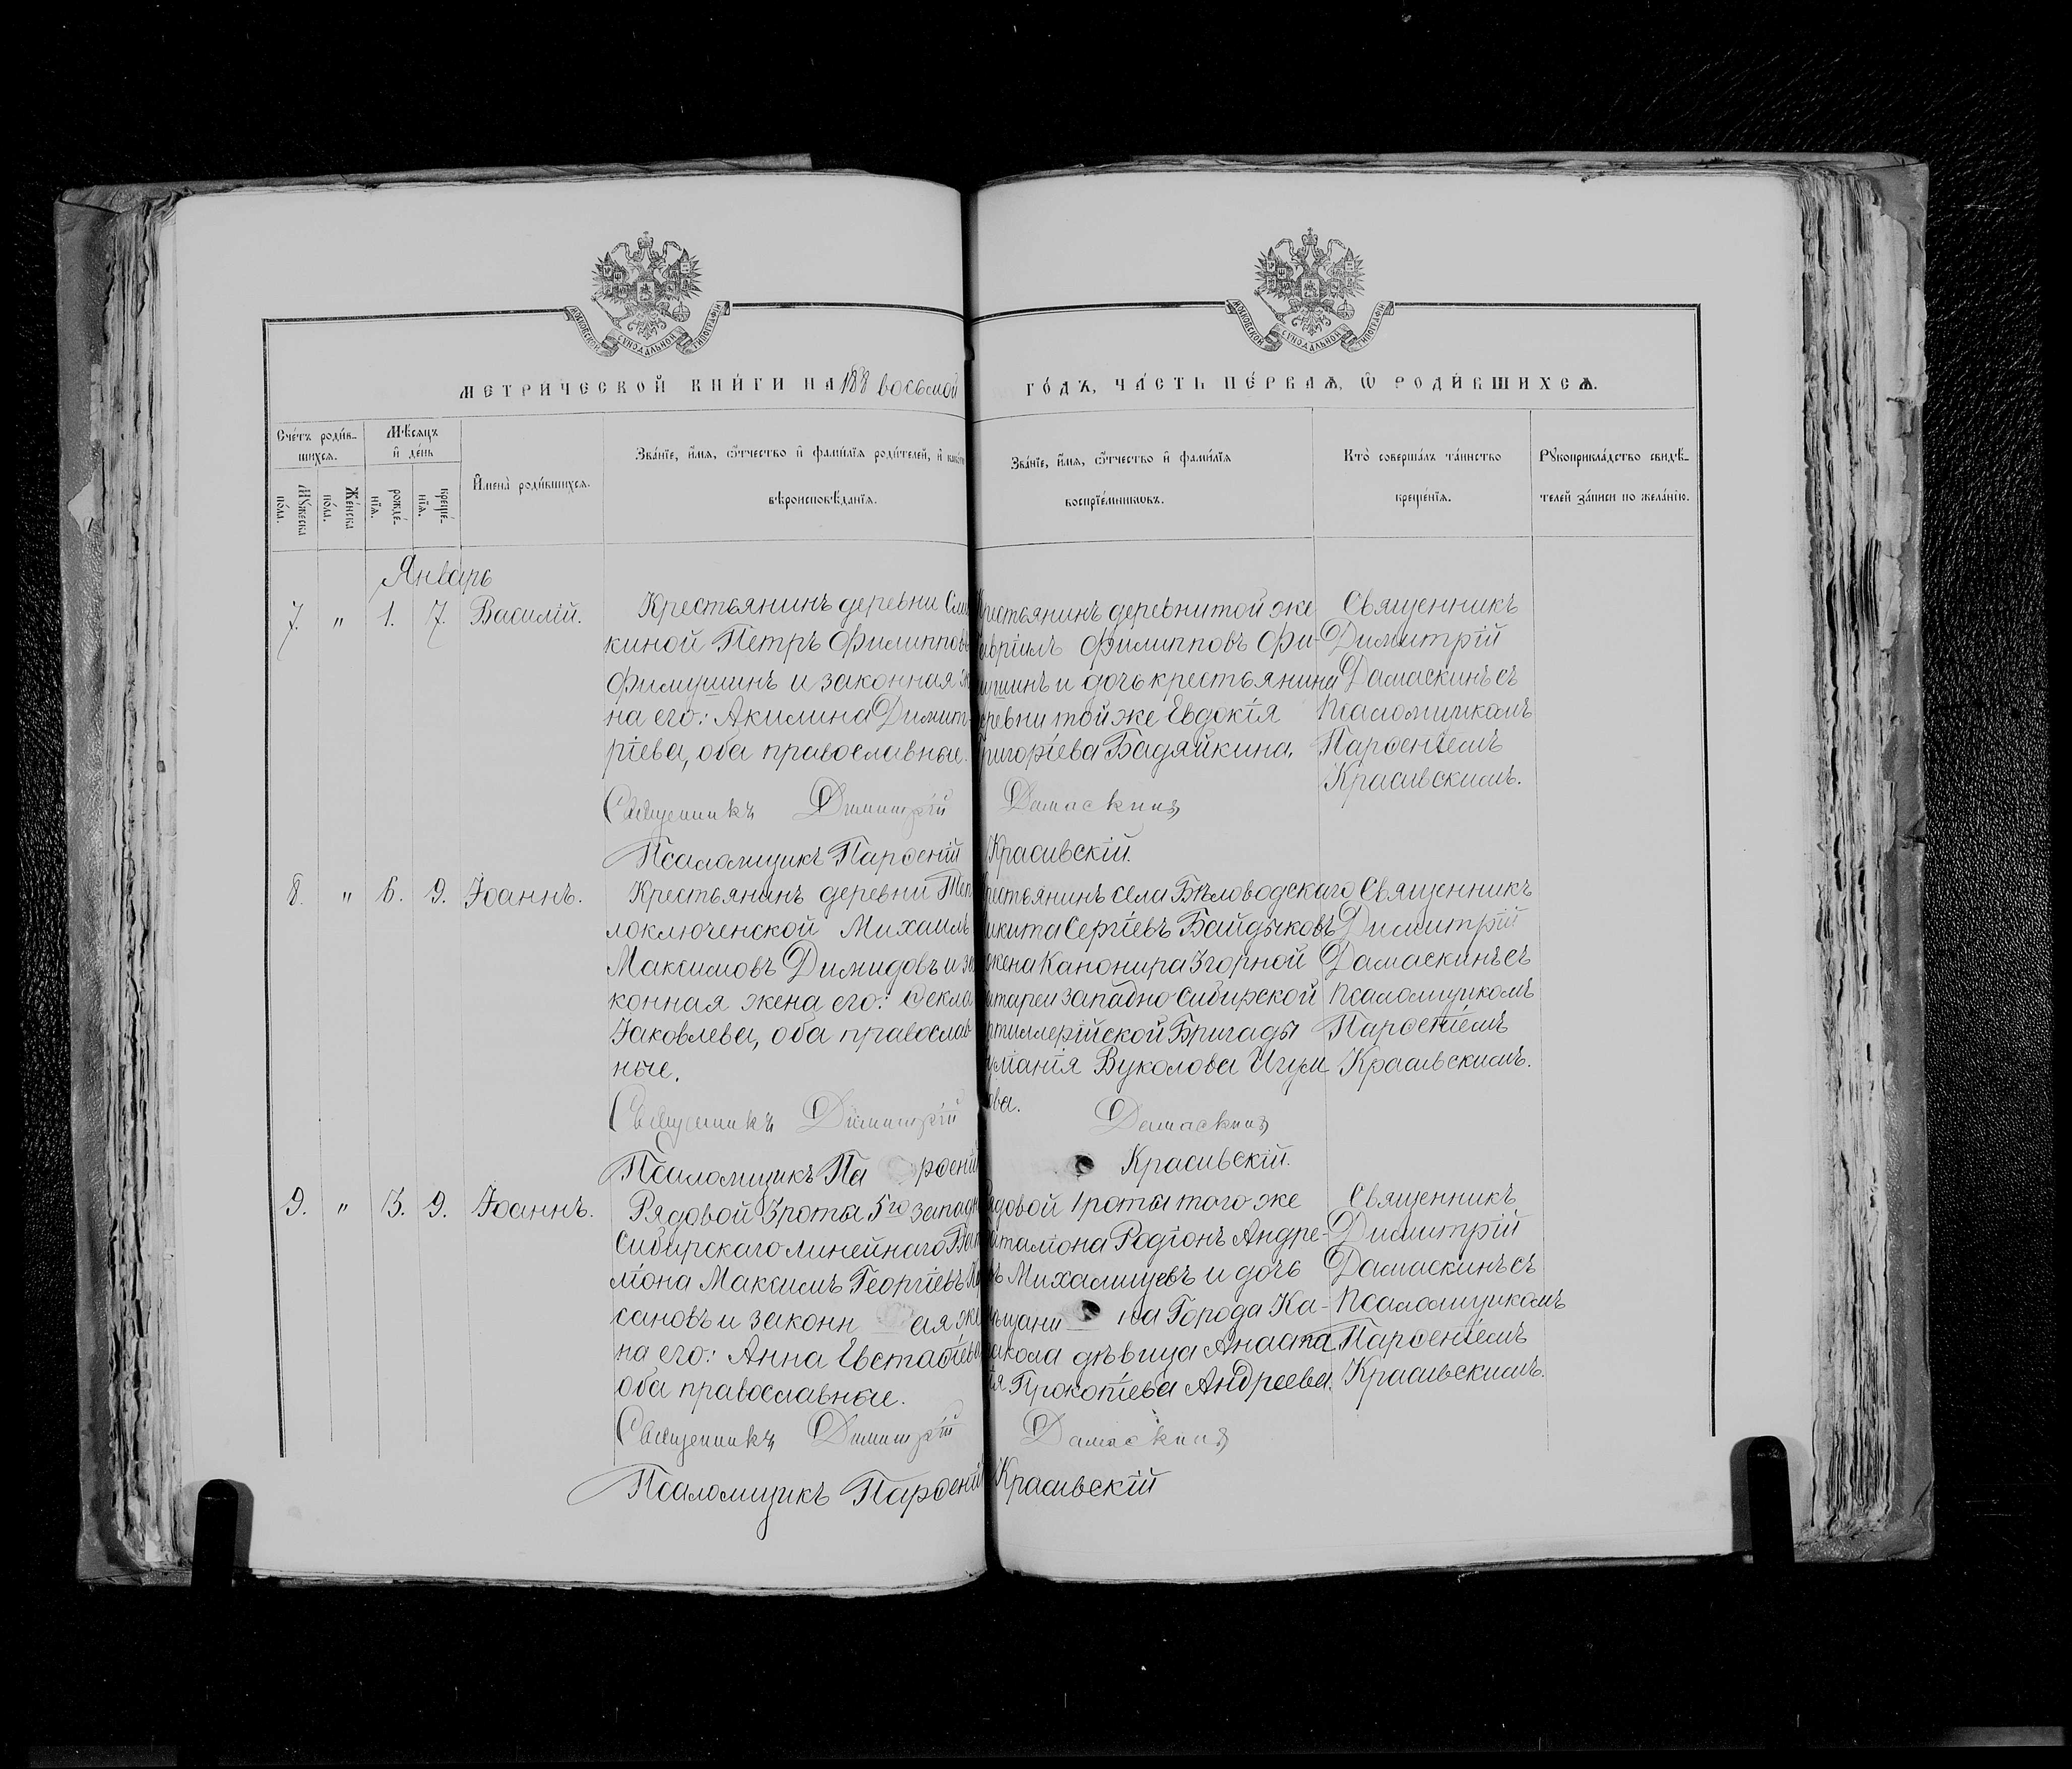 МОСКОВСКОЙ СѴНОДАЛЬНОЙ ТИПОГРАФІИ
МОСКОВСКОЙ СѴНОДАЛЬНОЙ ТИПОГРАФІИ
МЕТРИЧЕСКОЙ КНИ́ГИ НА 188 восьмой ГО́ДЪ, ЧА́СТЬ ПЕ́РВАѦ, Ѿ РОДИ́ВШИХСѦ.
Сче́тъ роди́в-
шихсѧ.
Мѣ́сѧцъ
и҆ де́нь
Мꙋ́жеска по́ла.
Же́нска по́ла.
рожде́-нїѧ.
креще́-нїѧ.
И҆мена̀ роди́вшихсѧ.
Зва́нїе, и҆́мѧ, ѻ҆́тчество и҆ фами́лїѧ роди́телей, и҆
вѣроисповѣ́данїѧ.
Зва́нїе, и҆́мѧ, ѻ҆́тчество и҆ фами́лїѧ
воспрїе́мникѡвъ.
Кто̀ соверша́лъ та́инство
креще́нїѧ.
Рꙋкоприкла́дство свидѣ́-
телей за́писи по жела́нїю.
Январь
7. " 1. 7. Василій.
Крестьянинъ деревни
киной Петръ Филипповъ
Филушинъ и законная
на его: Акилина Димит-
ріева, оба православные.
рестьянинъ деревни той же
авріилъ Филипповъ Фи-
шинъ и дочь крестьянина
ревни той же Евдокія
ригоріева Бадяйкина.
Священникъ
Димитрій
Дамаскинъ съ
Псаломщикомъ
Парѳеніемъ
Красивскимъ.
Священникъ Димитрій Дамаскинъ
Псаломщикъ Парѳеній Красивскій.
8. " 6. 9. Іоаннъ.
Крестьянинъ деревни Теп
лоключенской Михаилъ
Максимовъ Димидовъ и за
конная жена его: Ѳекла
Іаковлева, оба православ
ные.
рестьянинъ села Бѣловодскаго
икита Сергіевъ Байдыковъ
жена Канонира 3 горной
атареи западно-Сибирской
ртиллерійской Бригады
Вуколова Игум
ова.
Священникъ
Димитрій
Дамаскинъ съ
псаломщикомъ
Парѳеніемъ
Красивскимъ.
Священникъ Димитрій Дамаскинъ
Псаломщикъ Па рѳеній Красивскій.
9. " 13. 9. Іоаннъ.
Рядовой 3 роты 5го запад
Сибирскаго линейнаго Ба
ліона Максимъ Георгіевъ
сановъ и законн ая же
на его: Анна Евстаѳіева
оба православные.
ядовой 1 роты того же
аталіона Родіонъ Андре-
въ Михалищевъ и дочь
ѣщани на Города Ка-
акола дѣвица Анаста
ія Прокопіева Андреева.
Священникъ
Димитрій
Дамаскинъ съ
Псаломщикомъ
Парѳеніемъ
Красивскимъ.
Священникъ Димитрій Дамаскинъ
Псаломщикъ Парѳеній Красивскій